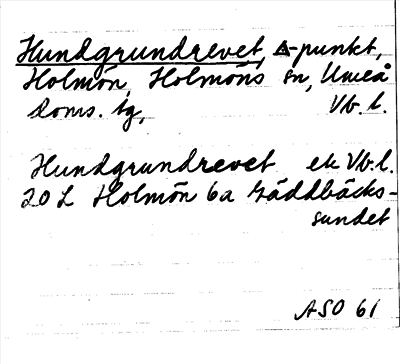 Hundgrundrevet, △-punkt,
Holmön, Holmöns sn, Umeå
doms. tg, Vb. l.
Hundgrundrevet ek Vb. l.
20 L Holmön 6a Gäddbäcks-
sundet
ASO 61